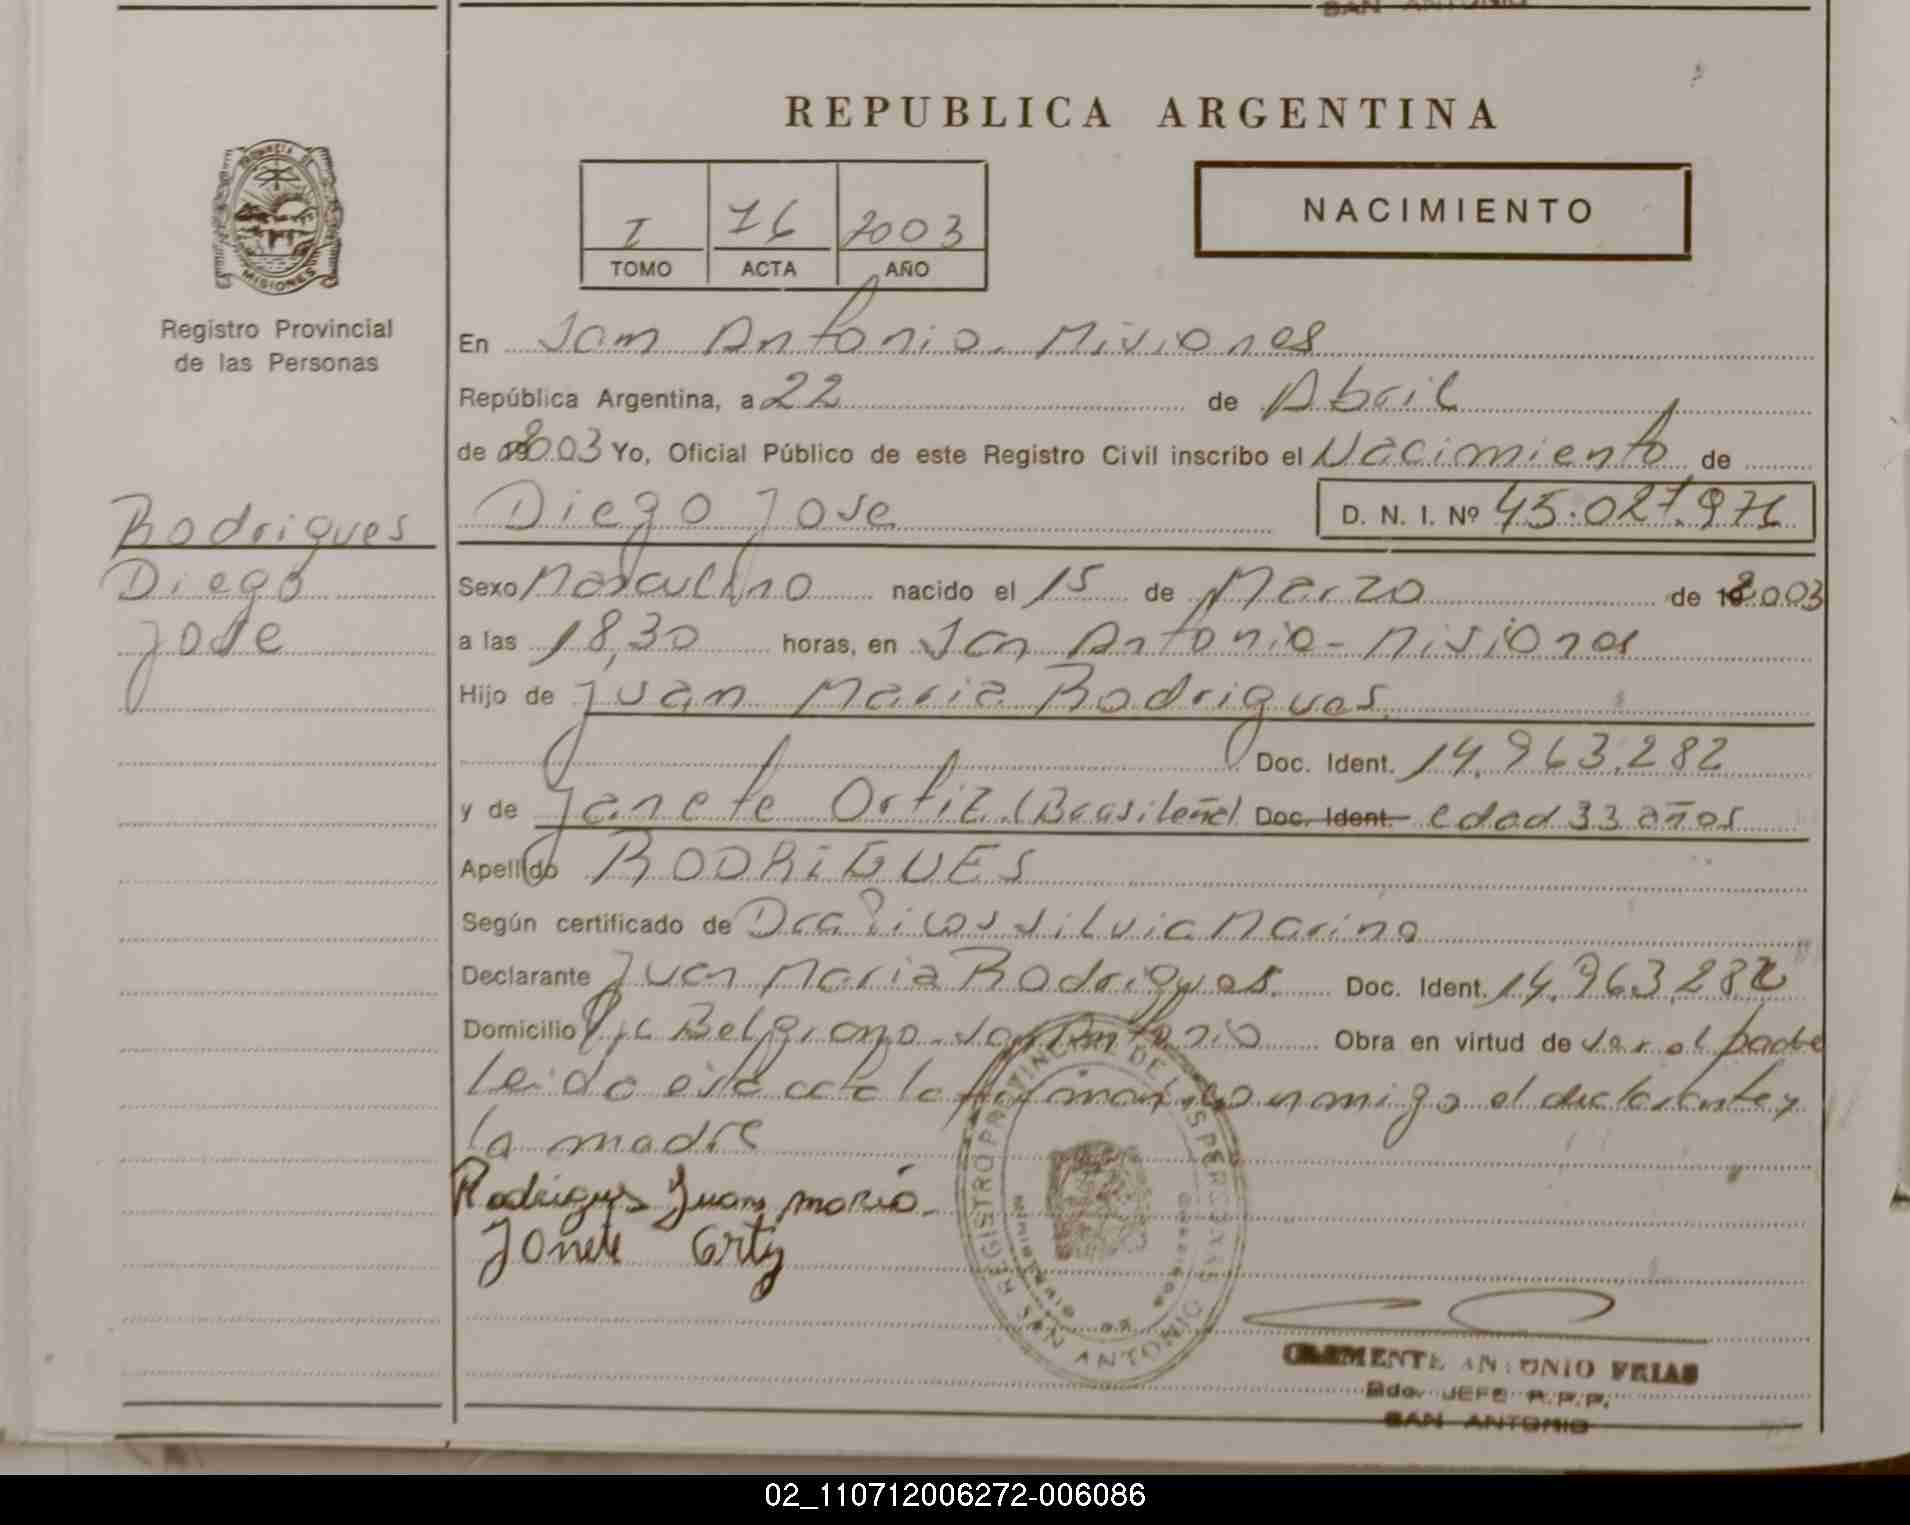 SAN ANTONIO
REPUBLICA ARGENTINA
PROVINCIA DE
MISIONES
Registro Provincial
de las Personas
I 76 2003
TOMO ACTA AÑO
NACIMIENTO
En San Antonio - Misiones
República Argentina, a 22 de Abril
de 2003 Yo, Oficial Público de este Registro Civil inscribo el Nacimiento de
Rodrigues
Diego Jose D. N. I. Nº 45.027.976
Diego
Jose
Sexo Masculino nacido el 15 de Marzo de 2003
a las 18,30 horas, en San Antonio - Misiones
Hijo de Juan Maria Rodrigues
Doc. Ident. 14.963.282
y de Janete Ortiz (Brasileña) Doc. Ident. edad 33 años
Apellido RODRIGUES
Según certificado de Dra Silvia Marino
Declarante Juan Maria Rodrigues Doc. Ident. 14.963.282
Domicilio Belgrano - San Antonio Obra en virtud de ser el padre
Leido esta acta la firman conmigo el declarante y
la madre
Rodrigues Juan maria
Janete Ortiz
REGISTRO PROVINCIAL DE LAS PERSONAS
SAN ANTONIO
CLEMENTE ANTONIO FRIAS
Bdo. JEFE R.P.P.
SAN ANTONIO
02_110712006272-006086